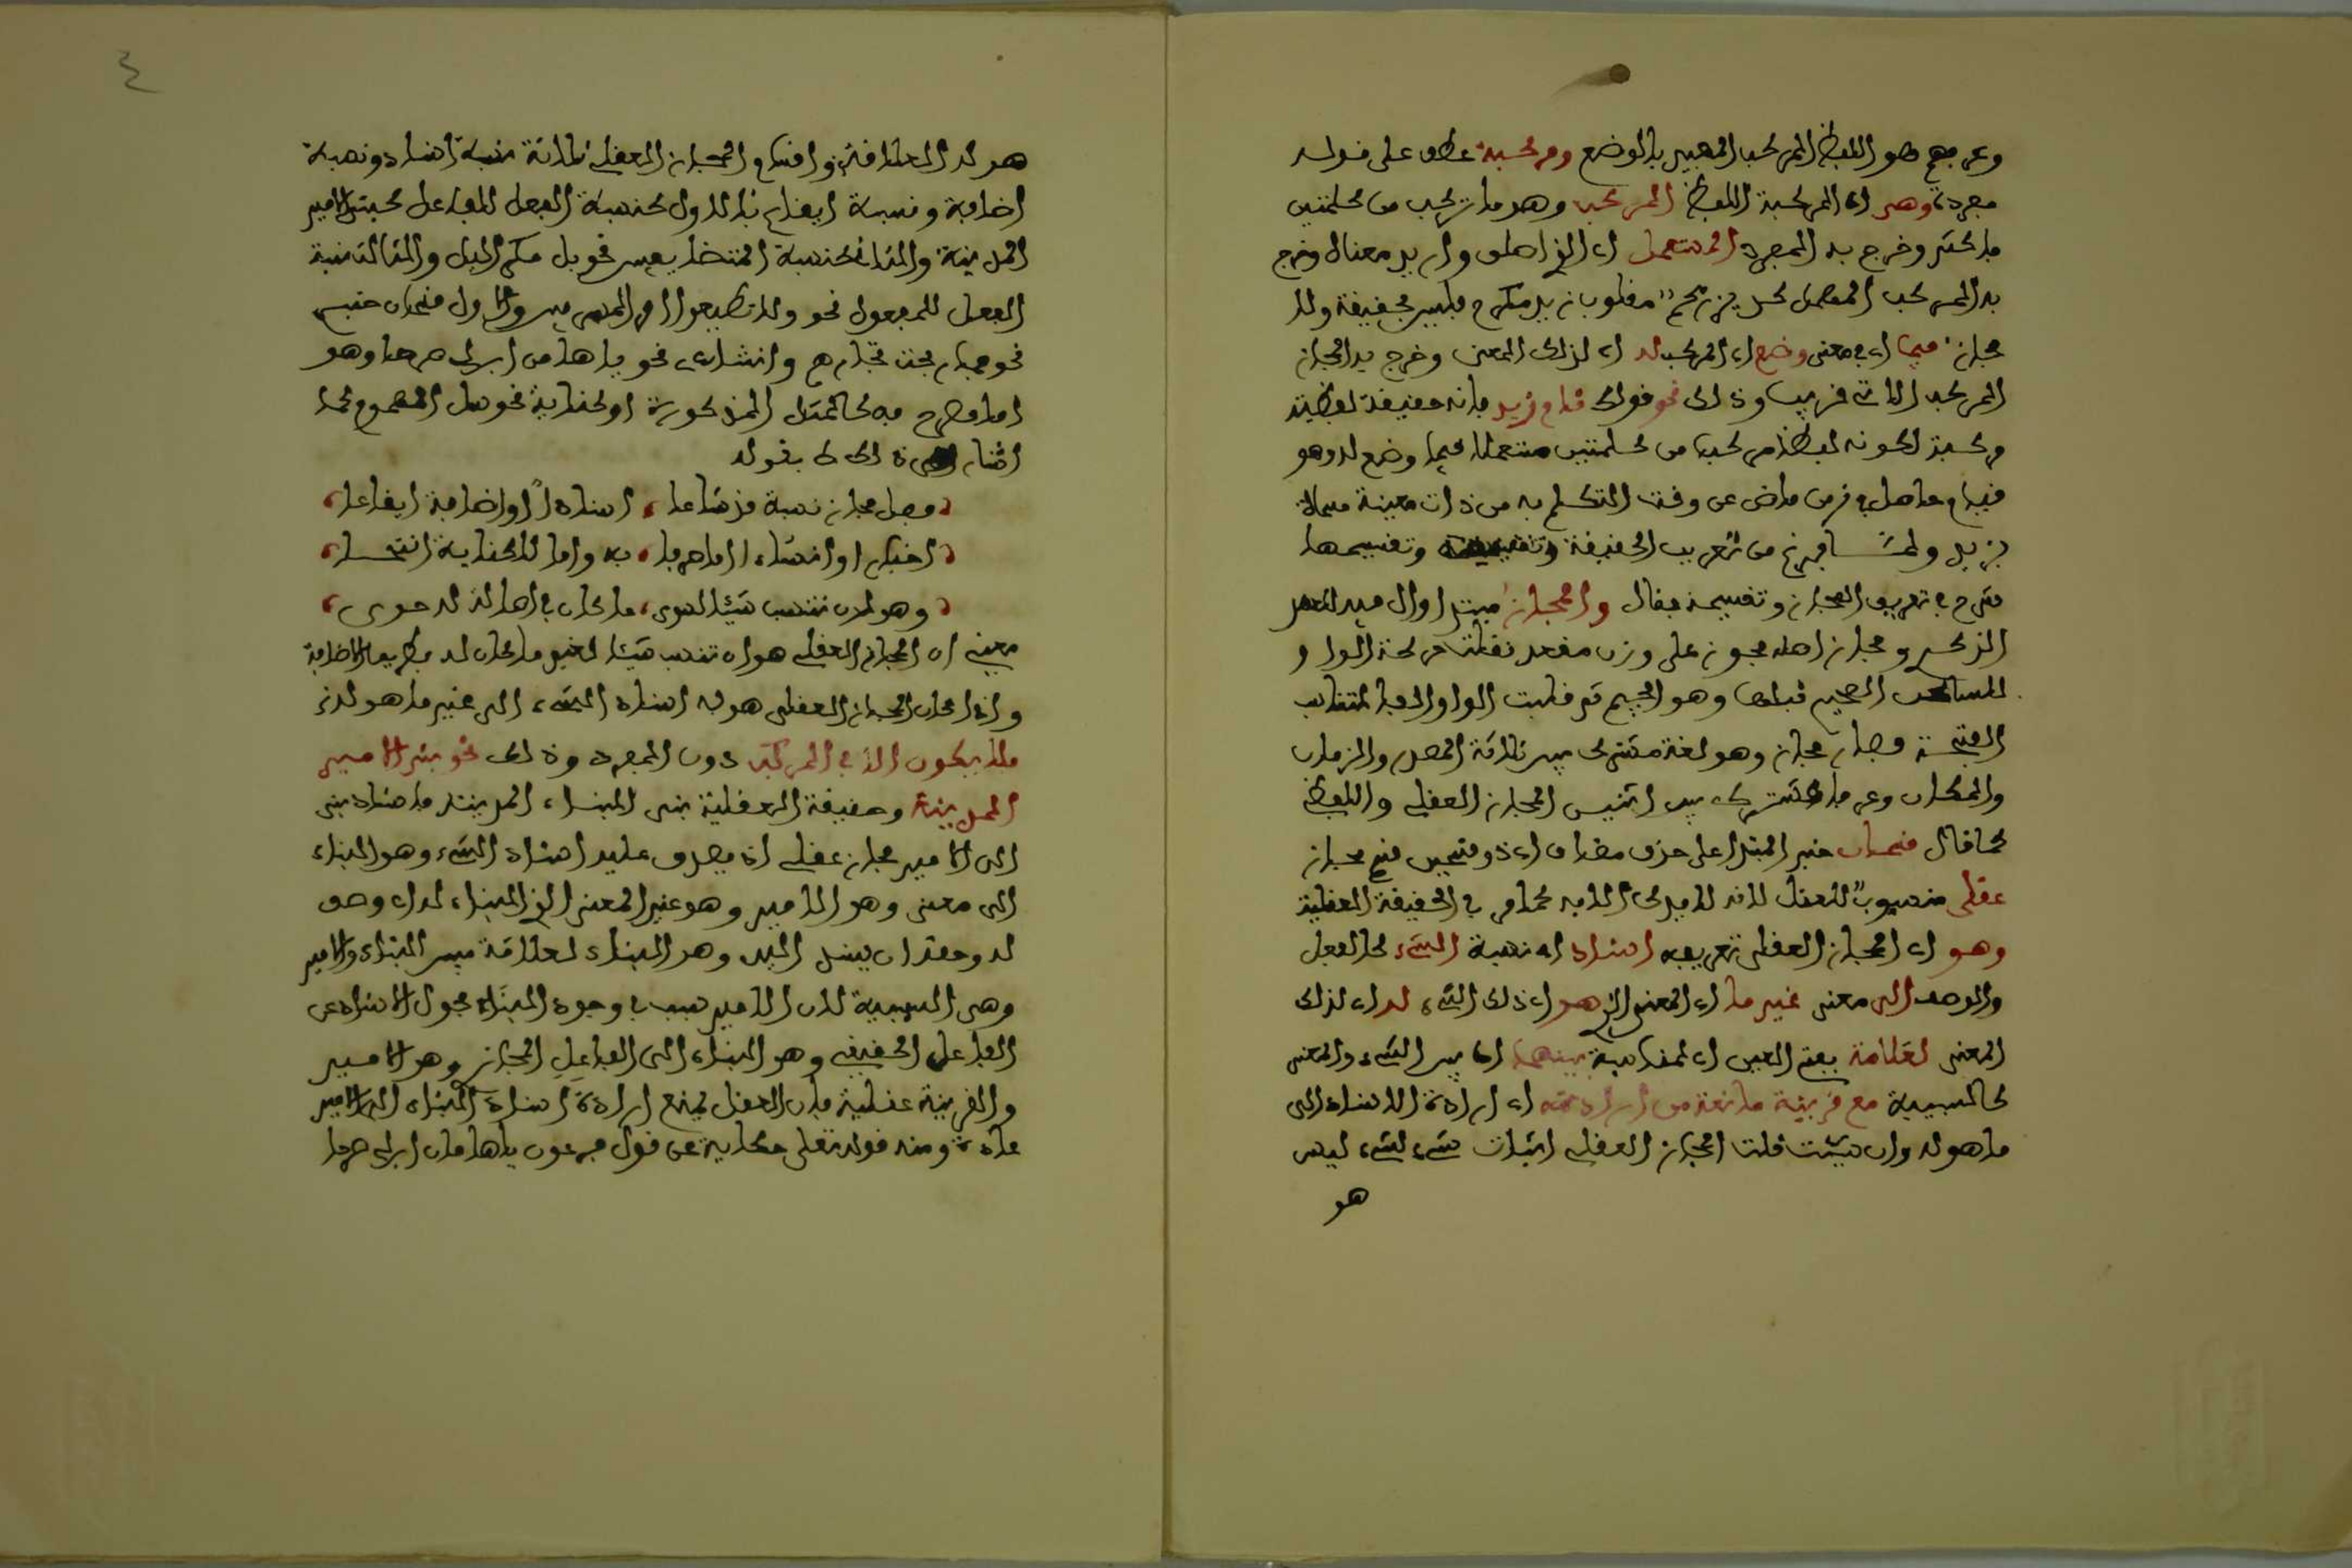 وعرفهم هو اللفظ المركب المفيد بالوضع ومركبة عطف على قوله
مفردة وهى اى المركبة اللفظ المركب وهو ما تركب من كلمتين
فاكثر وخرج به المفرد المستعمل اى الذى اطلق واريد معناه وخرج
به المركب المهمل كديز رفع مقلوب زيد فليس بحقيقة ولا
مجاز فيما اى فى معنى وضع اى المركب له اى لذلك المعنى وخرج به المجاز
المركب الاتى قريبا وذلك نحو قولك قام زيد فانه حقيقة لفظية
مركبة لكونه لفظا مركبا من كلمتين مستعملا فيما وضع له وهو
قيام حاصل فى زمن ماض عن وقت التكلم به من ذات معينة مسماة
بزيد ولما فرغ من تعريف الحقيقة وتقسيمها
شرع فى تعريف المجاز وتقسيمه فقال والمجاز مبتدا وال فيه للعهد
الذكرى ومجاز اصله مجوز على وزن مفعل نقلت حركة الواو
للساكن الصحيح قبلها وهو الجيم ثم قلبت الواو الفا لتناسب
الفتحة فصار مجاز وهو لغة مشترك بين ثلاثة المصدر والزمان
والمكان وعرفا مشترك بين اثنين المجاز العقلى واللفظى
كما قال قسمان خبر المبتدا على حذف مضاف اى ذو قسمين قسم مجاز
عقلى منسوب للعقل لانه لا يدرك الا به كما مر فى الحقيقة العقلية
وهو اى المجاز العقلى تعريفه اسناد اى نسبة الشىء كالفعل
والوصف الى معنى غير ما اى المعنى الذى هو اى ذلك الشىء له اى لذلك
المعنى لعلاقة بفتح العين اى لمناسبة بينهما اى بين الشىء والمعنى
كالسببية مع قرينة مانعة من ارادته اى ارادة الاسناد الى
ما هو له وان شئت قلت المجاز العقلى اثبات شىء لشىء ليس
هو
٤
هو له لعلاقة واقسام المجاز العقلى ثلاثة نسبة اسناد ونسبة
اضافة ونسبة ايقاع فالاول كنسبة الفعل للفاعل كبنى الامير
المدينة والثانى كنسبة المتضايفين نحو بل مكر الليل والثالث نسبة
الفعل للمفعول نحو ولا تطيعوا امر المسرفين والاول قسمان خبرى
نحو فما ربحت تجارتهم وانشاءى نحو يا هامان ابن لى صرحا وهو
اما مصرح به كالمثل المذكورة او كناية نحو سل الهموم كما
اشار الى ذلك بقوله
وصل مجاز نسبة قد شاعا، اسنادا او اضافة ايقاعا،
اخبار او انشاء اما صرحا، به واما للكناية انتحا،
وهو لان تنسب شيئا لسوى، ما كان فى اصالة له حوى،
يعنى ان المجاز العقلى هو ان تنسب شيئا لغير ما كان له بطريق الاصالة
واذا كان المجاز العقلى هو اسناد الشىء الى غير ما هو له
فلا يكون الا فى المركب دون المفرد وذلك نحو بنى الامير
المدينة وحقيقة العقلية بنى البناء المدينة فاسناد بنى
الى الامير مجاز عقلى اذ يصدق عليه اسناد الشىء وهو البناء
الى معنى وهو الامير وهو غير المعنى الذى البناء له اى وصف
له وحقه ان يسند اليه وهو البناء لعلاقة بين البناء والامير
وهى السببية لان الامير سبب فى وجود البناء فحول الاسناد عن
الفاعل الحقيقى وهو البناء الى الفاعل المجازى وهو الامير
والقرينة عقلية فان العقل يمنع ارادة اسناد البناء الى الامير
عادة ومنه قوله تعالى حكاية عن قول فرعون يا هامان ابن لى صرحا